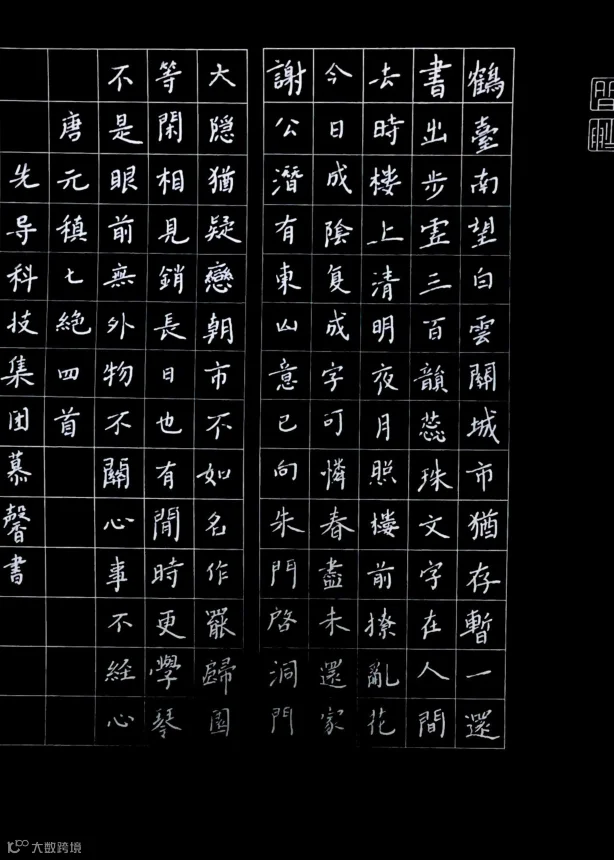 鶴臺南望白雲關城市猶存暫一還
書出步虛三百韻蕊珠文字在人間
去時楼上清明夜月照楼前撩亂花
今日成陰复成字可憐春盡未還家
謝公潛有東山意已向朱門啓洞門
大隱猶疑戀朝市不如名作罷歸園
等閑相見銷長日也有閒時更學琴
不是眼前無外物不關心事不経心
唐元稹七絕四首
先导科技集团慕馨書
大数跨境